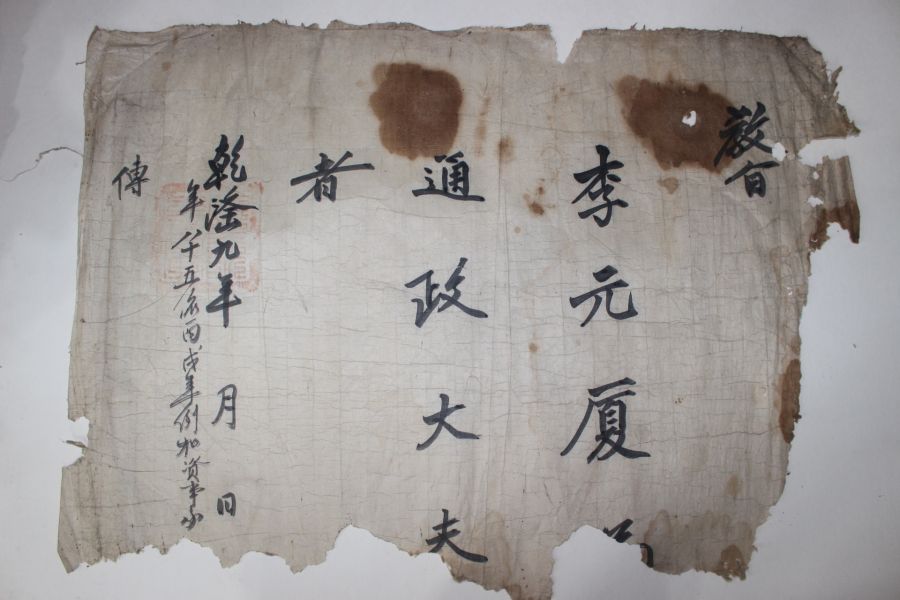 教旨
李元厦爲
通政大夫
者
乾隆九年 月 日
年八十五依丙戌年例加資事承
傳